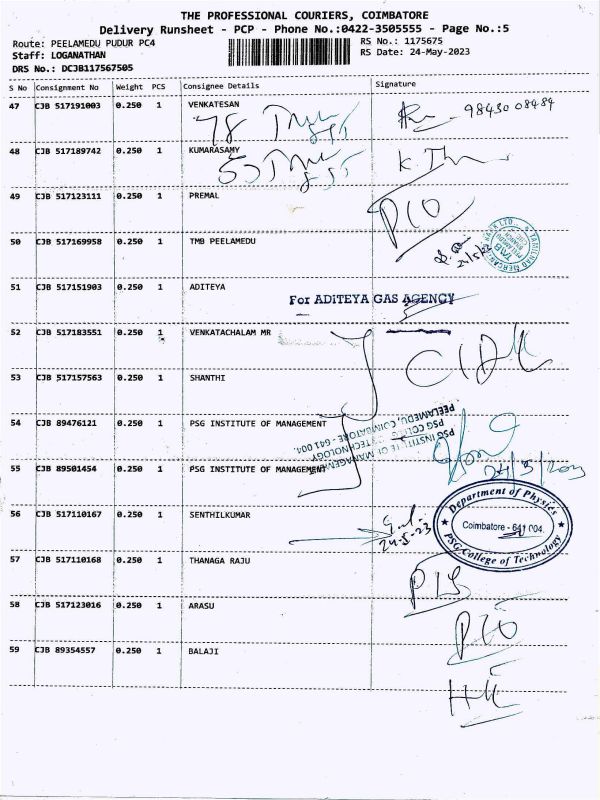 THE PROFESSIONAL COURIERS, COIMBATORE
Delivery Runsheet - PCP - Phone No.:0422-3505555 - Page No.:5
Route: PEELAMEDU PUDUR PC4
RS No.: 1175675
Staff: LOGANATHAN
RS Date: 24-May-2023
DRS No.: DCJB117567505
S No Consignment No Weight PCS Consignee Details Signature
47 CJB 517191003 0.250 1 VENKATESAN
98430 08484
48 CJB 517189742 0.250 1 KUMARASAMY
49 CJB 517123111 0.250 1 PREMAL
50 CJB 517169958 0.250 1 TMB PEELAMEDU
51 CJB 517151903 0.250 1 ADITEYA
For ADITEYA GAS AGENCY
52 CJB 517183551 0.250 1 VENKATACHALAM MR
53 CJB 517157563 0.250 1 SHANTHI
54 CJB 89476121 0.250 1 PSG INSTITUTE OF MANAGEMENT
PSG INSTITUTE OF MANAGEMENT
PSG COLLEGE OF TECHNOLOGY
PEELAMEDU, COIMBATORE - 641 004.
55 CJB 89501454 0.250 1 PSG INSTITUTE OF MANAGEMENT
24/5/2023
56 CJB 517110167 0.250 1 SENTHILKUMAR
24-5-23
Department of Physics
Coimbatore - 641 004.
PSG College of Technology
57 CJB 517110168 0.250 1 THANAGA RAJU
58 CJB 517123016 0.250 1 ARASU
59 CJB 89354557 0.250 1 BALAJI